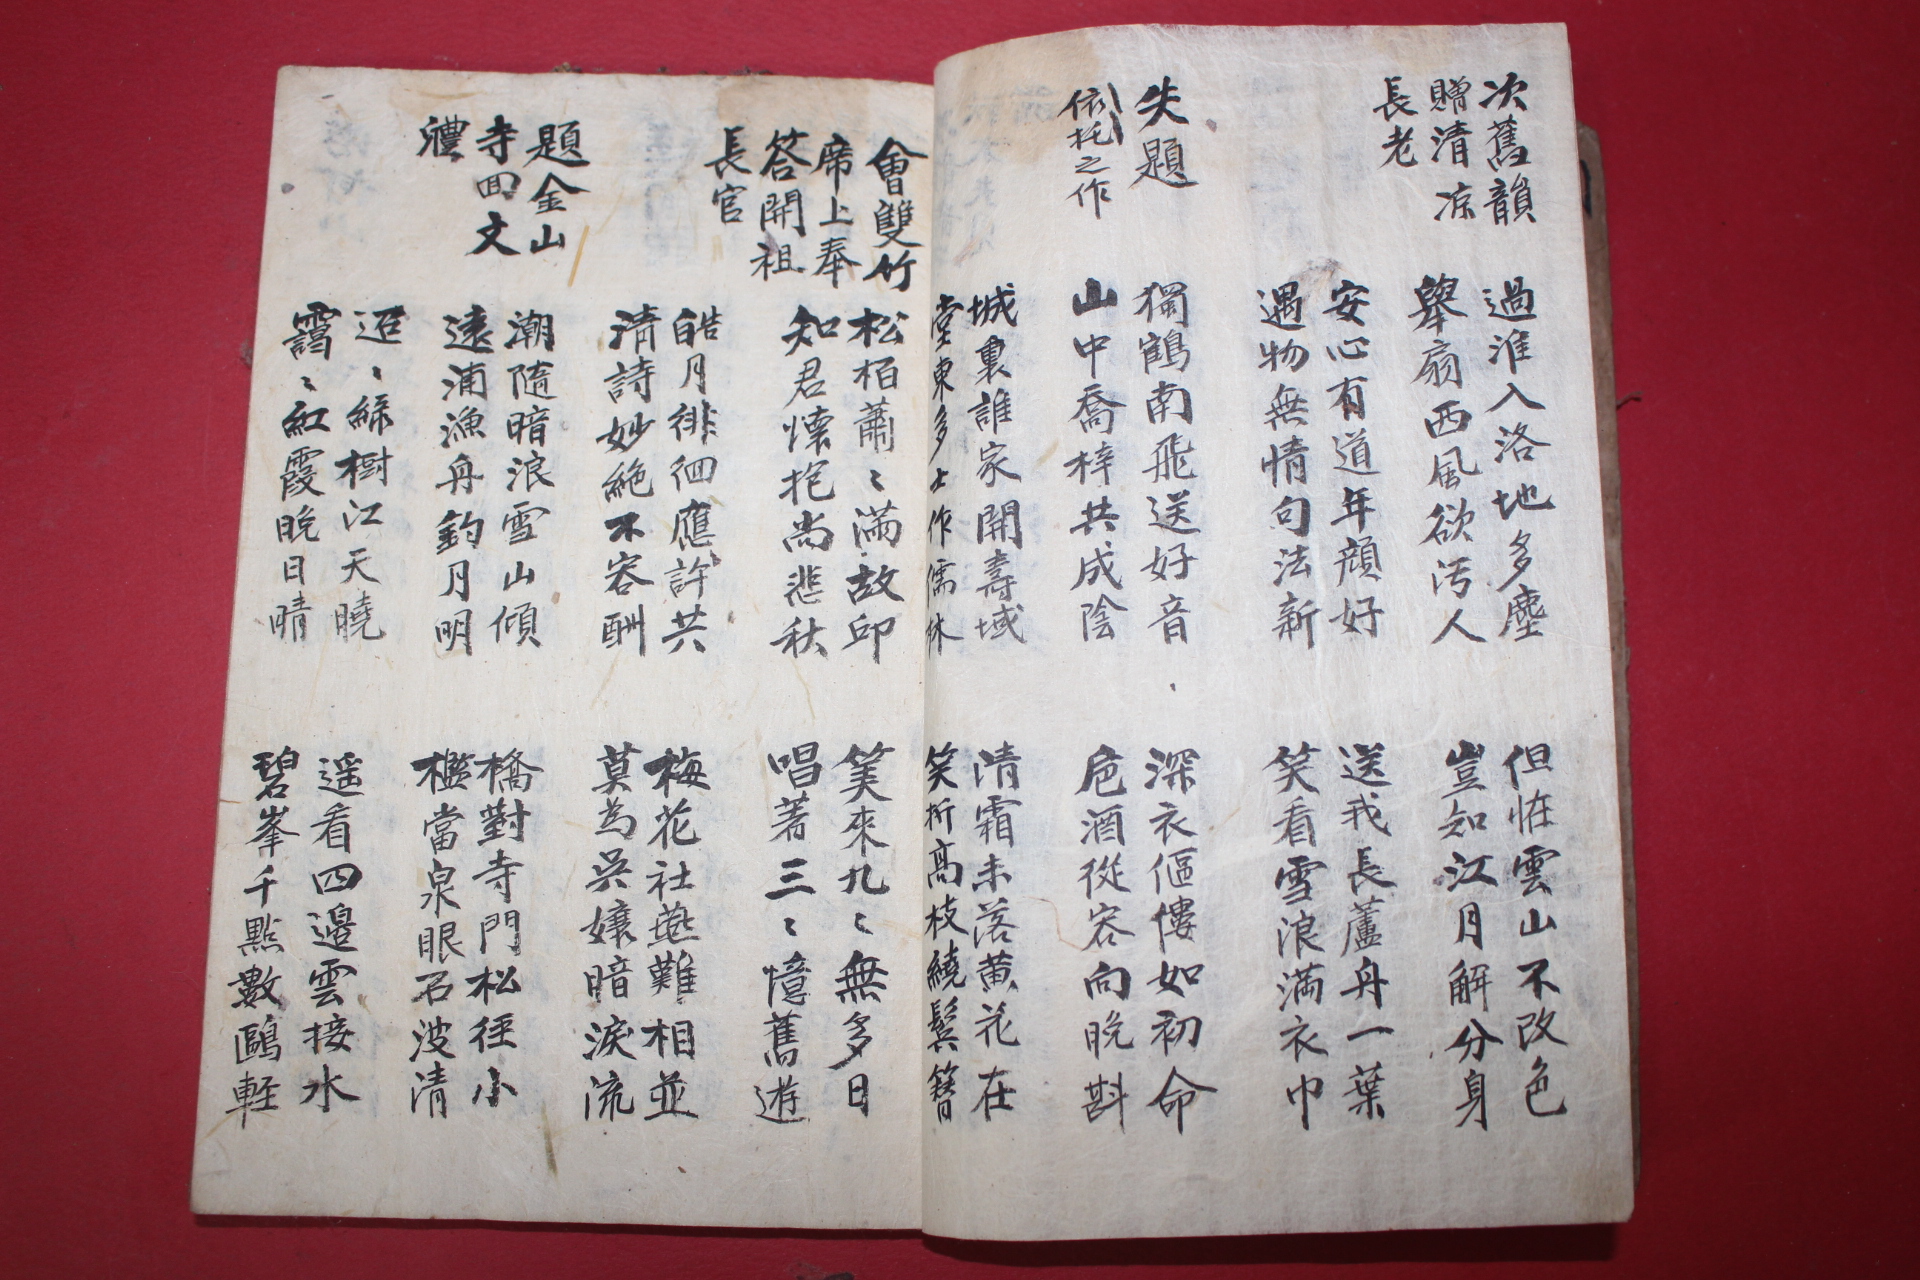 次舊韻
贈清凉
長老
過淮入洛地多塵
舉扇西風欲汚人
但恠雲山不改色
豈知江月解分身
安心有道年顔好
遇物無情句法新
送我長蘆舟一葉
笑看雪浪滿衣巾
失題
依托之作
獨鶴南飛送好音
山中喬梓共成陰
深衣傴僂如初命
卮酒從容向晚斟
城裏誰家開壽域
堂東多士作儒林
清霜未落黄花在
笑折髙枝繞鬂簪
會雙竹
席上奉
答開祖
長官
松栢蕭〻滿故邱
知君懐抱尚悲秋
筭來九〻無多日
唱著三〻憶舊遊
皓月徘徊應許共
清詩妙絶不容酬
梅花社燕難相並
莫為吳孃暗淚流
題金山
寺囬文
軆
潮隨暗浪雪山傾
遠浦漁舟釣月明
橋對寺門松徑小
檻當泉眼石波清
迢〻綠樹江天曉
靄〻紅霞晚日晴
遥看四邉雲接水
碧峯千點數鷗輊